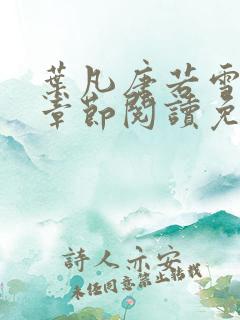 葉凡唐若雪
章節閱讀免
詩人示安
未经同意禁止转载